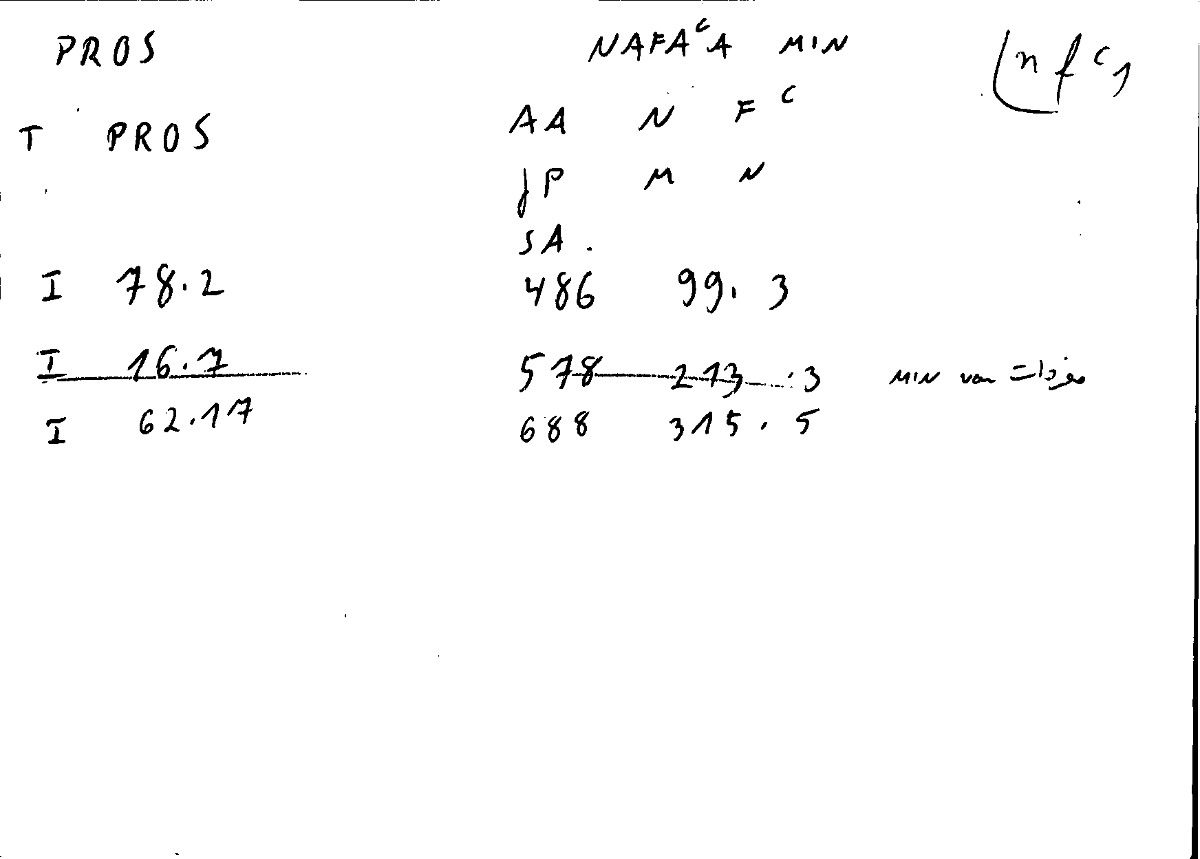 PROS NAFAᶜA MIN (nfᶜ1
T PROS AA N Fᶜ
JP M N
SA.
I 78.2 486 99.3
I 16.7 578 213.3 MIN van مفردات
I 62.17 688 315.5